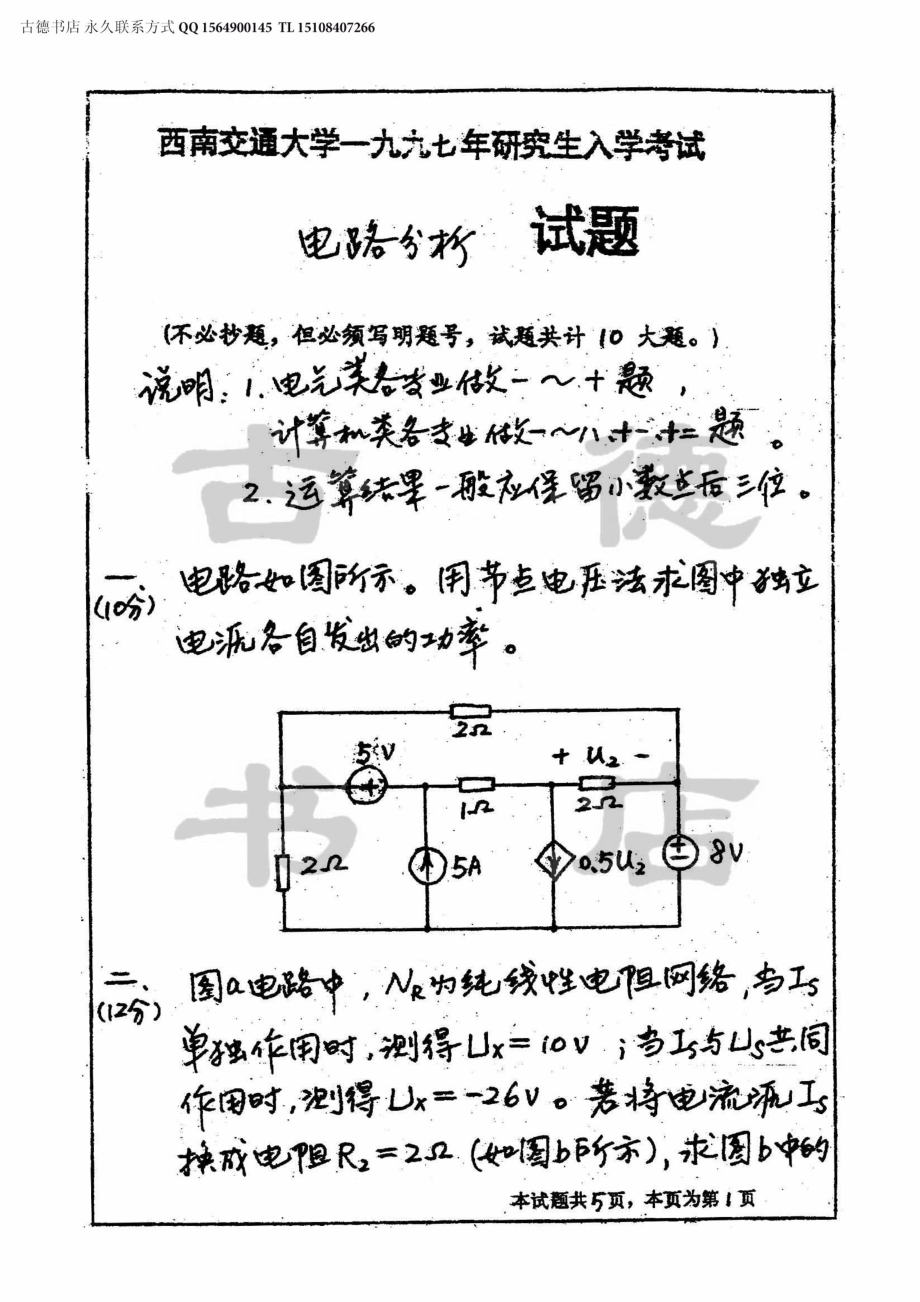 古德书店 永久联系方式 QQ 1564900145 TL 15108407266
西南交通大学一九九七年研究生入学考试
电路分析 试题
(不必抄题，但必须写明题号，试题共计 10 大题。)
说明：1.电气类各专业做一～十题，
计算机类各专业做一～八、十一、十二题。
2.运算结果一般应保留小数点后三位。
一、电路如图所示。用节点电压法求图中独立
(10分)
电源各自发出的功率。
2Ω
5V
+ U₂ -
1Ω
2Ω
2Ω
5A
0.5U₂
8V
二、图a电路中，N_R为纯线性电阻网络，当I_S
(12分)
单独作用时，测得U_X=10V；当I_S与U_S共同
作用时，测得U_X=-26V。若将电流源I_S
换成电阻R₂=2Ω(如图b所示)，求图b中的
本试题共5页，本页为第1页
古德
书店